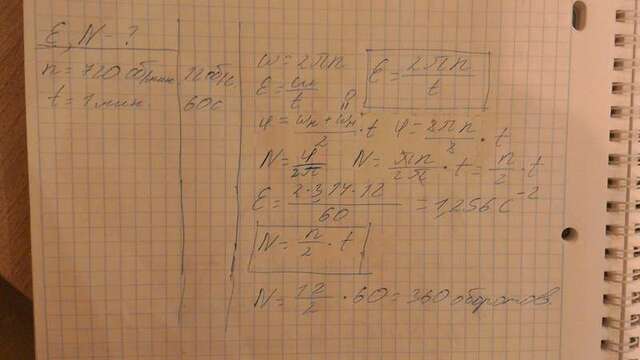 ε, N - ?
n = 720 об/мин. 12 об/с
t = 1 мин. 60 с
ω = 2πn
ε = ω/t
ε = 2πn/t
φ = (ωн + ωк)/2 · t φ = 2πn/2 · t
N = φ/2π N = πn/2π · t = n/2 · t
ε = 2·3,14·12/60 = 1,256 с⁻²
N = n/2 · t
N = 12/2 · 60 = 360 оборотов.